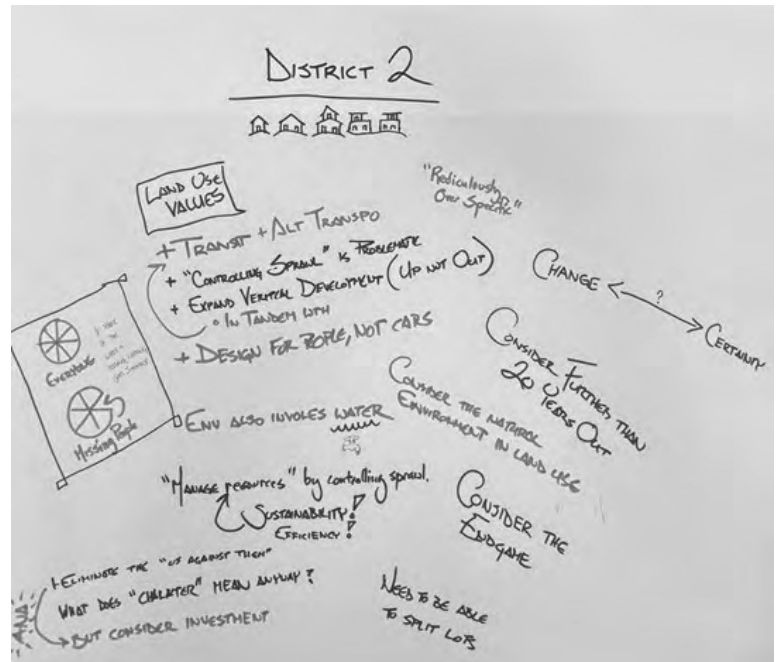 DISTRICT 2
LAND USE
VALUES
"Rediculously
Over Specific"
+ TRANSIT + ALT TRANSPO
+ "CONTROLLING SPRAWL" IS PROBLEMATIC
+ EXPAND VERTICAL DEVELOPMENT (UP NOT OUT)
IN TANDEM WITH
+ DESIGN FOR PEOPLE, NOT CARS
CHANGE ? CERTAINTY
EVERYTHING
Missing People
CONSIDER FURTHER THAN
20 YEARS OUT
CONSIDER THE NATURAL
ENVIRONMENT IN LAND USE
ENV ALSO INVOLES WATER
"MANAGE RESOURCES" by controlling sprawl.
SUSTAINABILITY!
EFFICIENCY!
CONSIDER THE
ENDGAME
+ ELIMINATE THE "US AGAINST THEM"
WHAT DOES "CHARACTER" MEAN ANYWAY?
AND
BUT CONSIDER INVESTMENT
NEED TO BE ABLE
TO SPLIT LOTS